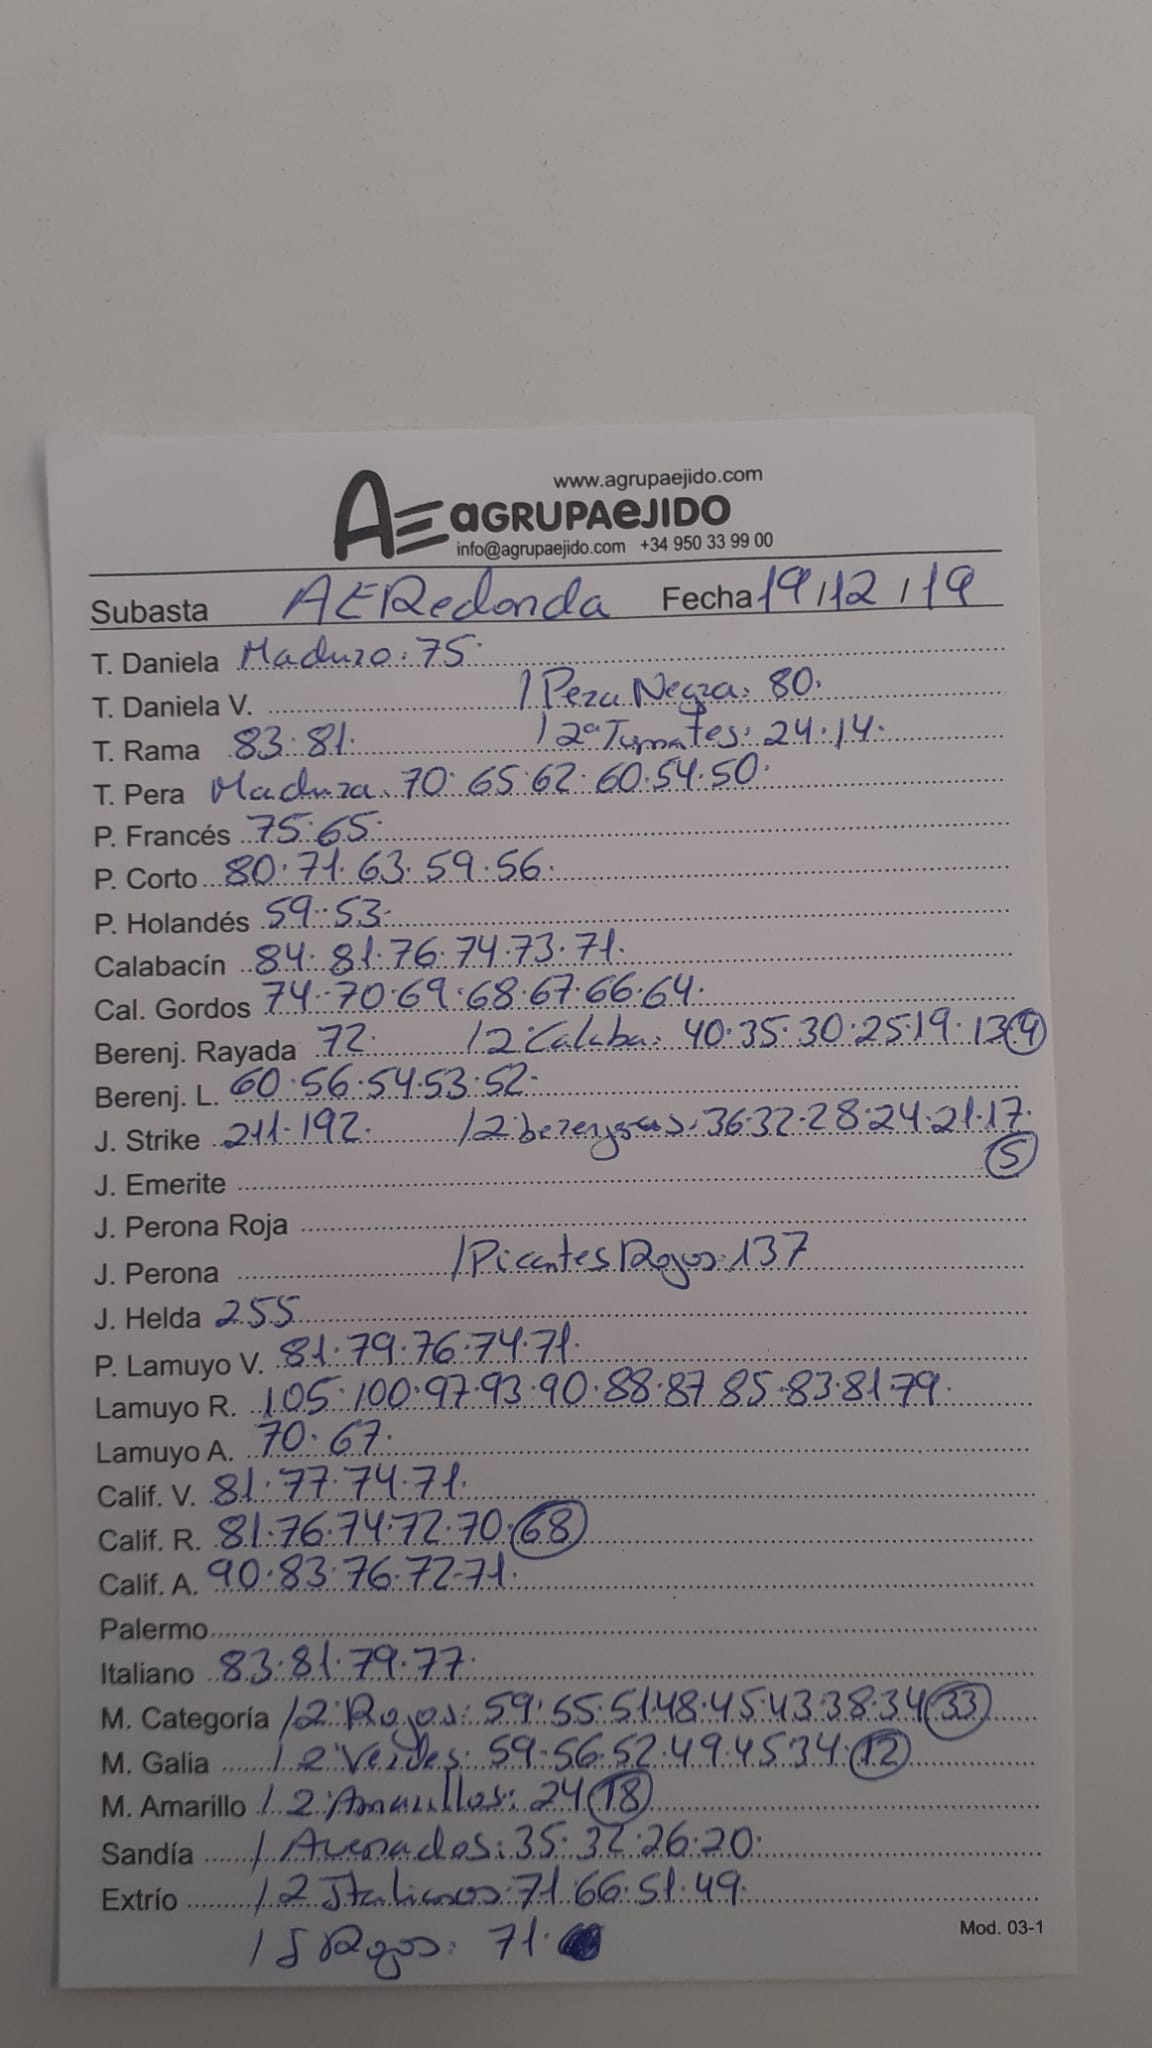 www.agrupaejido.com
AE aGRUPAeJIDO
info@agrupaejido.com +34 950 33 99 00
Subasta AERedonda Fecha 19/12/19
T. Daniela Maduro: 75.
T. Daniela V. / Pera Negra: 80.
T. Rama 83·81. / 2ª Tomates: 24·14.
T. Pera Madura. 70·65·62·60·54·50.
P. Francés 75·65.
P. Corto 80·71·63·59·56.
P. Holandés 59·53.
Calabacín 84·81·76·74·73·71.
Cal. Gordos 74·70·69·68·67·66·64.
Berenj. Rayada 72. / 2ª Calaba: 40·35·30·25·19·13 9
Berenj. L. 60·56·54·53·52.
J. Strike 211·192. / 2ª berenjenas: 36·32·28·24·21·17.
5
J. Emerite
J. Perona Roja
J. Perona / Picantes Rojos: 137
J. Helda 255
P. Lamuyo V. 81·79·76·74·71.
Lamuyo R. 105·100·97·93·90·88·87·85·83·81·79.
Lamuyo A. 70·67.
Calif. V. 81·77·74·71.
Calif. R. 81·76·74·72·70·68
Calif. A. 90·83·76·72·71.
Palermo
Italiano 83·81·79·77.
M. Categoría / 2ª Rojos: 59·55·51·48·45·43·38·34 33
M. Galia / 2ª Verdes: 59·56·52·49·45·34·12
M. Amarillo / 2ª Amarillos: 24 18
Sandía / Asurados: 35·32·26·20.
Extrío / 2ª Italianos: 71·66·51·49.
/ S Rojos: 71.
Mod. 03-1